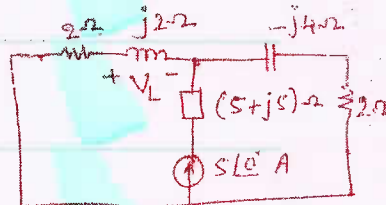 2Ω j2Ω -j4Ω
+ V_L -
(5+j5)Ω 2Ω
5∠0° A